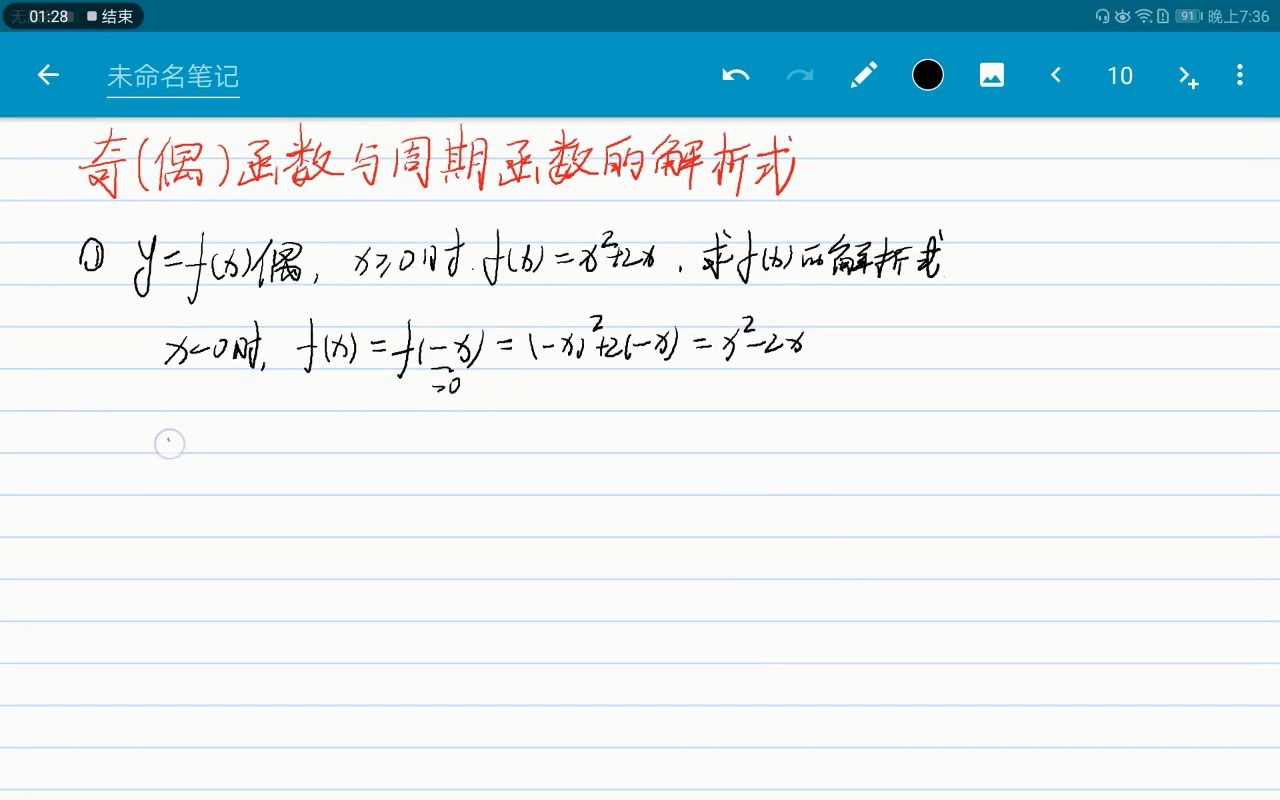 01:28 结束 91 晚上7:36
未命名笔记 10
奇(偶)函数与周期函数的解析式
① y=f(x)偶, x≥0时. f(x)=x²+2x. 求f(x)的解析式
x<0时, f(x)=f(-x)=(-x)²+2(-x)=x²-2x
>0